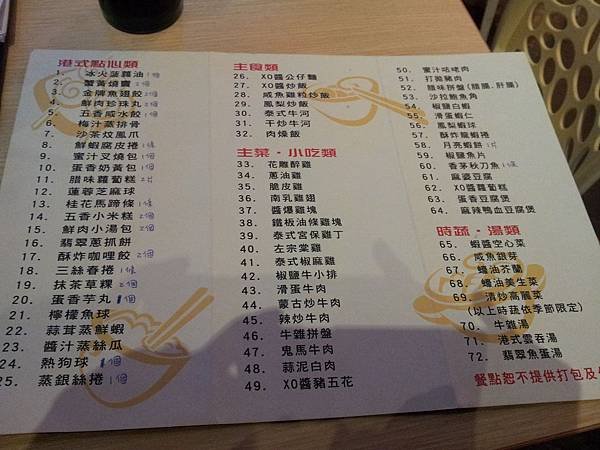 港式點心類
1. 冰火菠蘿油 1個
2. 蟹黃燒賣 2個
3. 金牌鳳翅餃 2個
4. 鮮肉珍珠丸 2個
5. 五香咸水餃 1個
6. 梅汁蒸排骨
7. 沙茶炆鳳爪
8. 鮮蝦腐皮捲 1條
9. 蜜汁叉燒包 1個
10. 蛋香奶黃包 1個
11. 腊味蘿蔔糕 2片
12. 蓮蓉芝麻球
13. 桂花馬蹄條 1個
14. 五香小米糕 2個
15. 鮮肉小湯包 2個
16. 翡翠蔥抓餅
17. 酥炸咖哩餃 2個
18. 三絲春捲 1條
19. 抹茶草粿 2個
20. 蛋香芋丸 1個
21. 檸檬魚球
22. 蒜茸蒸鮮蝦
23. 醬汁蒸絲瓜
24. 熱狗球 1個
25. 蒸銀絲捲 1個
主食類
26. XO醬公仔麵
27. XO醬炒飯
28. 咸魚雞粒炒飯
29. 鳳梨炒飯
30. 泰式牛河
31. 干炒牛河
32. 肉燥飯
主菜・小吃類
33. 花雕醉雞
34. 蔥油雞
35. 脆皮雞
36. 南乳雞翅
37. 醬爆雞塊
38. 鐵板油條雞塊
39. 泰式宮保雞丁
40. 左宗棠雞
41. 泰式椒麻雞
42. 椒鹽牛小排
43. 滑蛋牛肉
44. 蒙古炒牛肉
45. 辣炒牛肉
46. 牛雜拼盤
47. 鬼馬牛肉
48. 蒜泥白肉
49. XO醬豬五花
50. 蜜汁咕咾肉
51. 打拋豬肉
52. 腊味拼盤(腊腸、肝腸)
53. 沙拉鮑魚角
54. 椒鹽白蝦
55. 滑蛋蝦仁
56. 鳳梨蝦球
57. 酥炸龍蝦捲
58. 月亮蝦餅 1片
59. 椒鹽魚片
60. 香茅秋刀魚 1條
61. 麻婆豆腐
62. XO醬蘿蔔糕
63. 蛋香豆腐煲
64. 麻辣鴨血豆腐煲
時蔬・湯類
65. 蝦醬空心菜
66. 咸魚銀芽
67. 蠔油芥蘭
68. 蠔油美生菜
69. 清炒高麗菜
(以上時蔬依季節限定)
70. 牛雜湯
71. 港式雲吞湯
72. 翡翠魚蛋湯
餐點恕不提供打包及